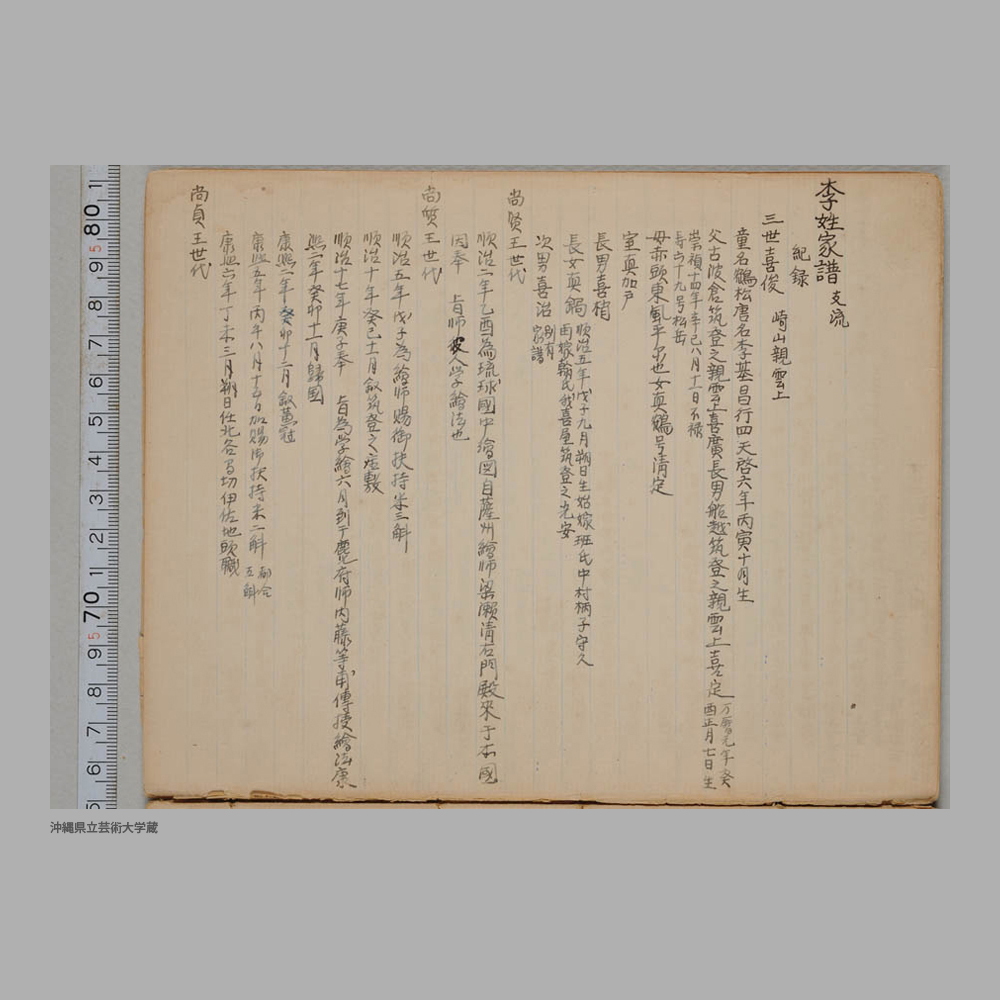 李姓家譜 支流
紀録
三世喜俊 崎山親雲上
童名鶴松唐名李基昌行四天啓六年丙寅十月生
父古波倉筑登之親雲上喜廣長男船越筑登之親雲上喜定 万暦元年癸
酉正月七日生
崇禎十四年辛巳八月十一日不禄
寿六十九号松岳
母赤頭東風平尓也女真鶴号清定
室真加戸
長男喜梢
長女真鍋 順治五年戊子九月朔日生始嫁班氏中村柄子守久
両嫁 氏我喜屋筑登之允安
次男喜治 別有
家譜
尚賢王世代
順治二年乙酉為琉球國中繪図自薩州繪師 瀬清右門殿来于本國
因奉 旨師 学繪法也
尚質王世代
順治五年戊子為繪師賜御扶持米三斛
順治十年癸巳十一月叙筑登之座敷
順治十七年庚子奉 旨為学繪六月到于麑府師内藤等甫傳授繪法康
熙二年癸卯十一月歸國
康熙二年癸卯十二月叙黄冠
康熙五年丙午八月十 日加賜御扶持米二斛 都合
五斛
康熙六年丁未三月朔日任北谷間切伊佐地頭職
尚貞王世代
80
70
1
9
8
7
6
5
4
3
2
1
9
8
7
6
5
沖縄県立芸術大学蔵